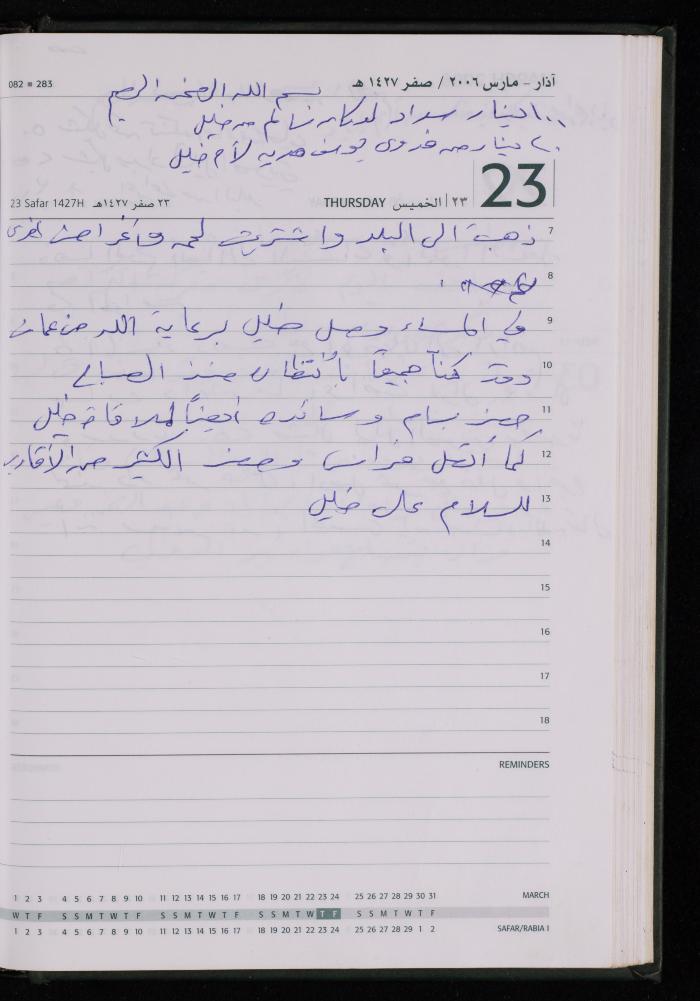 082 ■ 283
آذار - مارس ٢٠٠٦ / صفر ١٤٢٧ هـ
بسم الله الرحمن الرحيم
١٠٠ دينار سداد لدكانه سالم من خليل
٢٠ دينار من فدوى يوسف هديه لأم خليل
23 Safar 1427H ٢٣ صفر ١٤٢٧هـ THURSDAY ٢٣ | الخميس 23
7 ذهبت الى البلد واشتريت لحمه وأغراض اخرى
8
9 في المساء وصل خليل برعاية الله من عمان
10 وقد كنا جميعاً بأنتظاره منذ الصباح
11 حضر بسام وسائده ايضاً لملاقاة خليل
12 كما أتصل فراس وحضر الكثير من الأقارب
13 للسلام على خليل
14
15
16
17
18
REMINDERS
1 2 3 4 5 6 7 8 9 10 11 12 13 14 15 16 17 18 19 20 21 22 23 24 25 26 27 28 29 30 31 MARCH
W T F S S M T W T F S S M T W T F S S M T W T F S S M T W T F
1 2 3 4 5 6 7 8 9 10 11 12 13 14 15 16 17 18 19 20 21 22 23 24 25 26 27 28 29 1 2 SAFAR/RABIA I